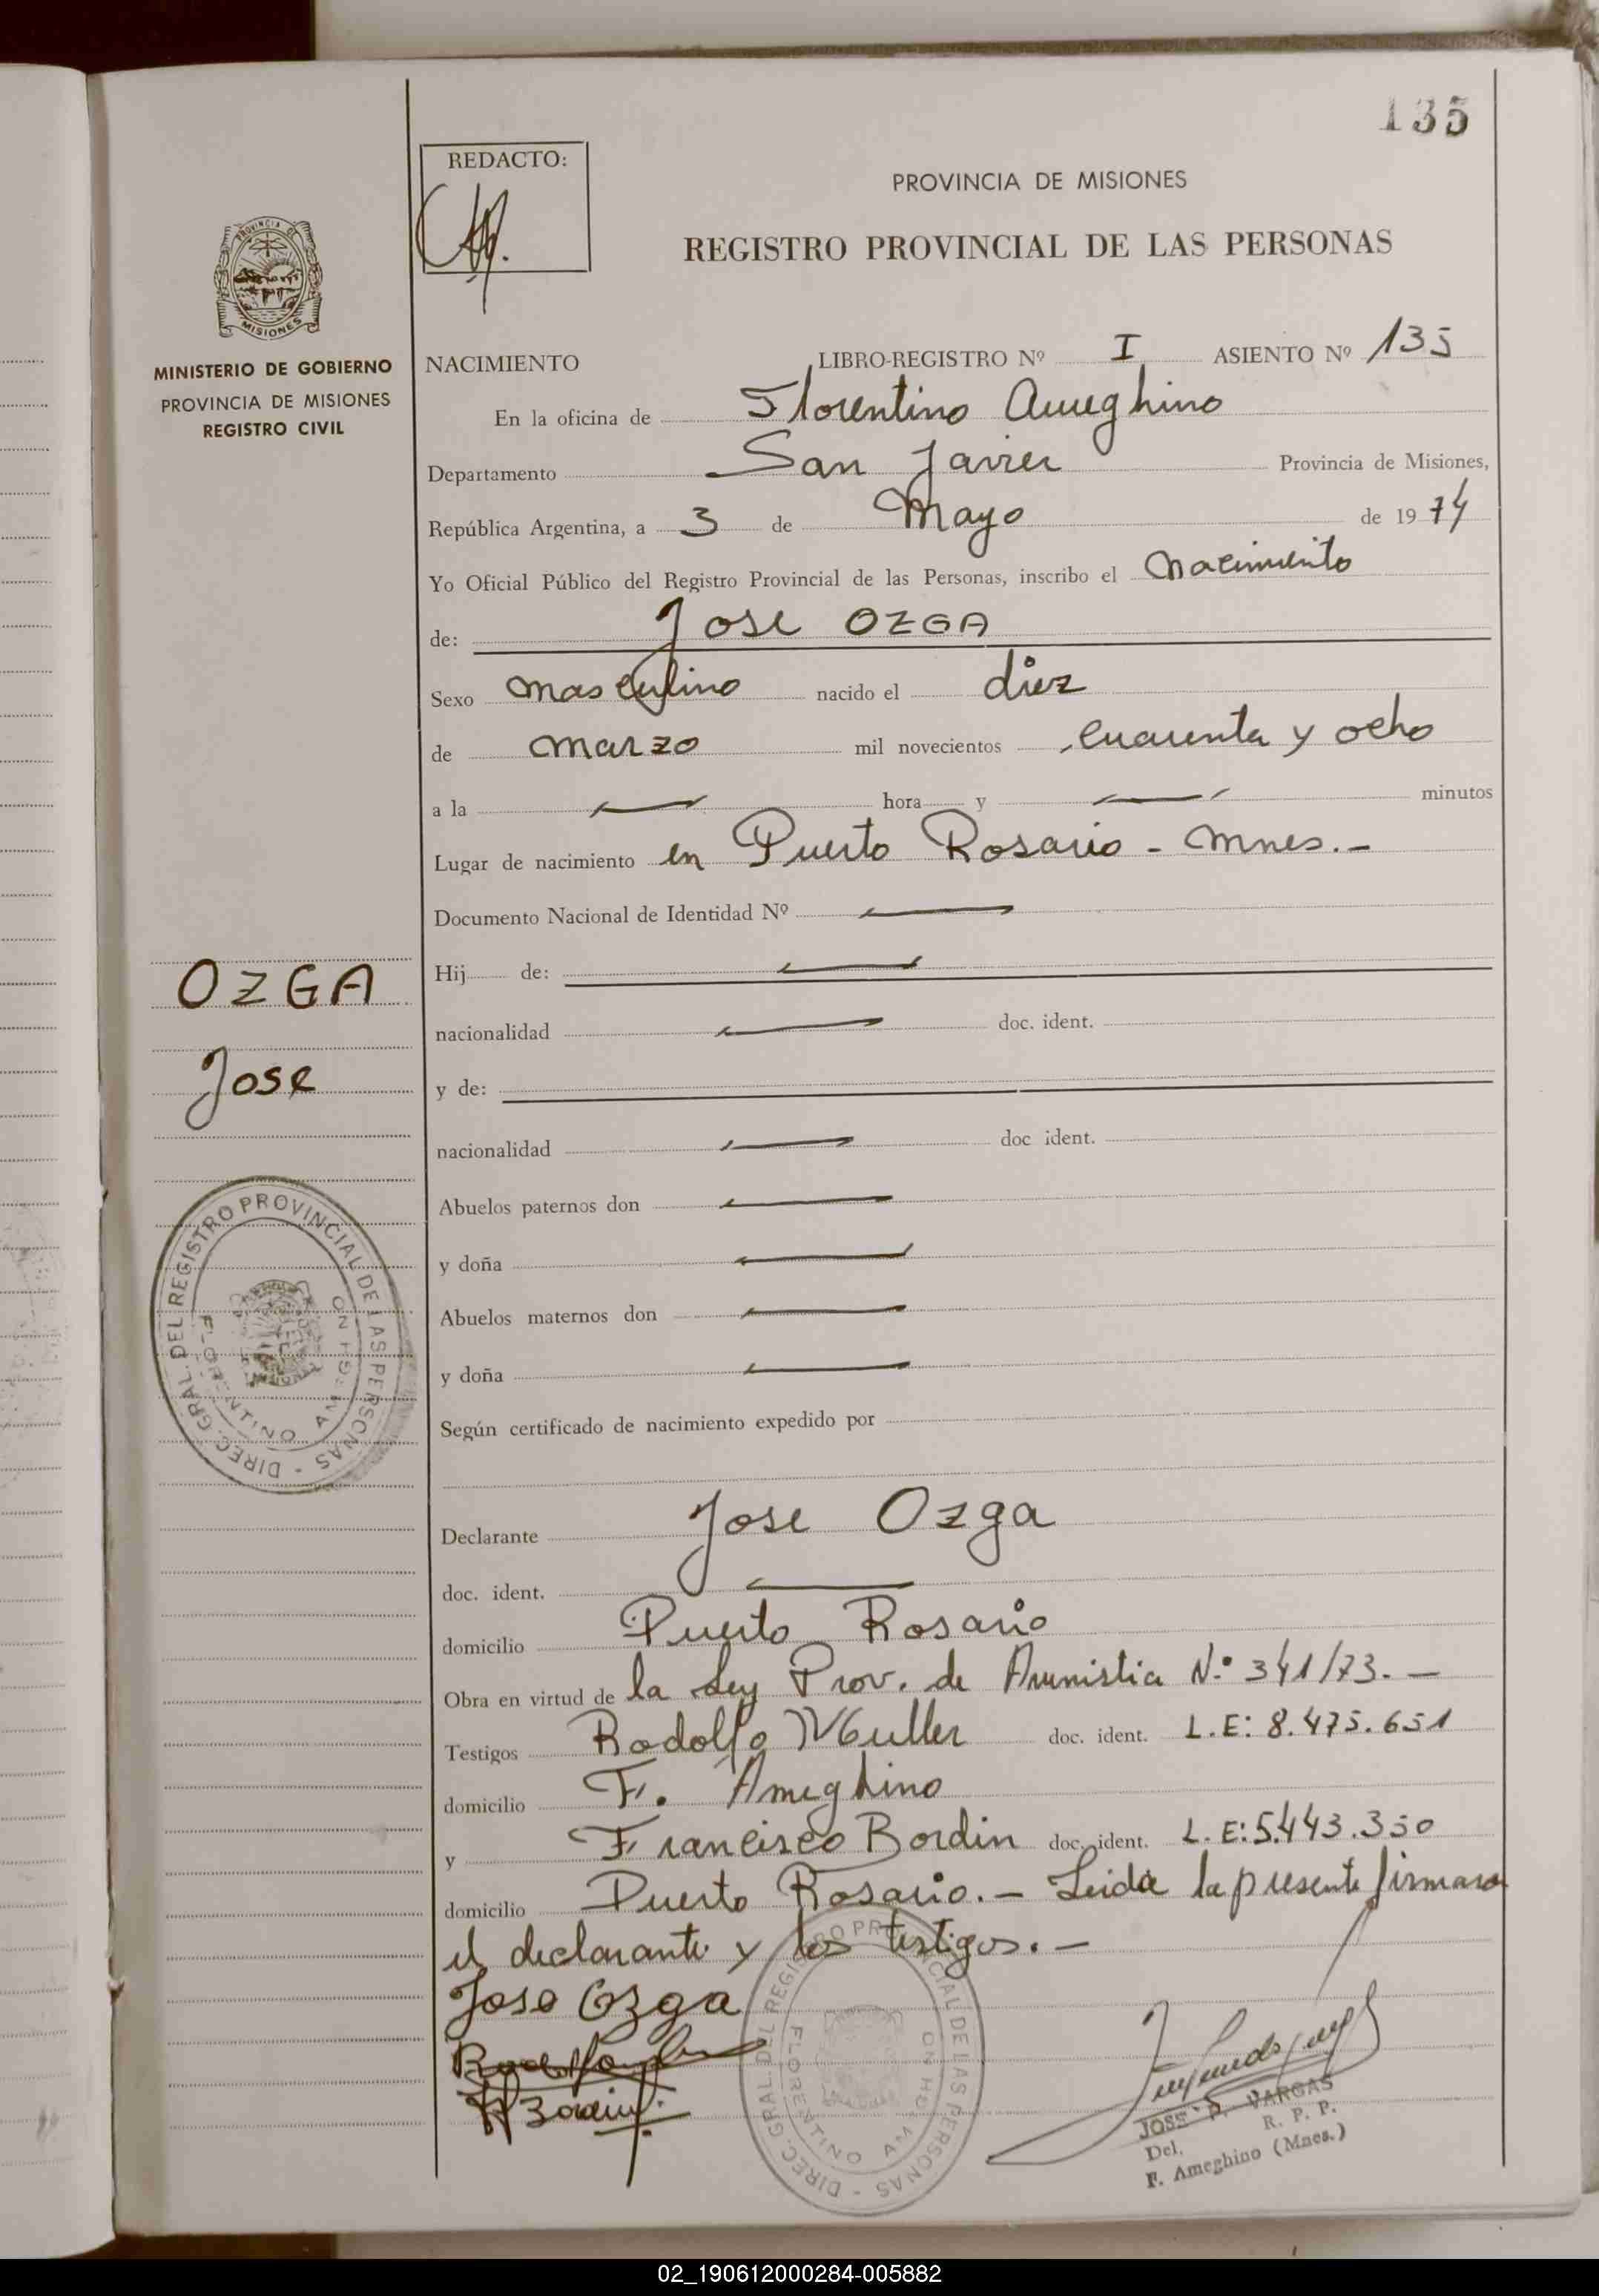 135
REDACTO:
PROVINCIA DE MISIONES
REGISTRO PROVINCIAL DE LAS PERSONAS
MISIONES
MINISTERIO DE GOBIERNO
PROVINCIA DE MISIONES
REGISTRO CIVIL
NACIMIENTO LIBRO-REGISTRO Nº I ASIENTO Nº 135
En la oficina de Florentino Ameghino
Departamento San Javier Provincia de Misiones,
República Argentina, a 3 de Mayo de 1974
Yo Oficial Público del Registro Provincial de las Personas, inscribo el Nacimiento
de: Jose OZGA
Sexo masculino nacido el diez
de marzo mil novecientos cuarenta y ocho
a la — hora y — minutos
Lugar de nacimiento en Puerto Rosario - Mnes.-
Documento Nacional de Identidad Nº —
OZGA
Jose
Hij de: —
nacionalidad — doc. ident.
y de:
nacionalidad — doc ident.
Abuelos paternos don —
y doña —
Abuelos maternos don —
y doña —
DIREC. GRAL. DEL REGISTRO PROVINCIAL DE LAS PERSONAS -
FLORENTINO AMEGHINO
Según certificado de nacimiento expedido por
Declarante Jose Ozga
doc. ident. —
domicilio Puerto Rosario
Obra en virtud de la Ley Prov. de Amnistia N.º 341/73.-
Testigos Rodolfo Muller doc. ident. L.E: 8.475.651
domicilio F. Ameghino
y Francisco Bordin doc. ident. L.E: 5.443.350
domicilio Puerto Rosario.- Leida la presente firmaron
el declarante y los testigos.-
Jose Ozga
DIREC. GRAL. DEL REGISTRO PROVINCIAL DE LAS PERSONAS -
FLORENTINO AMEGHINO
JOSE P. VARGAS
Del. R. P. P.
F. Ameghino (Mnes.)
02_190612000284-005882